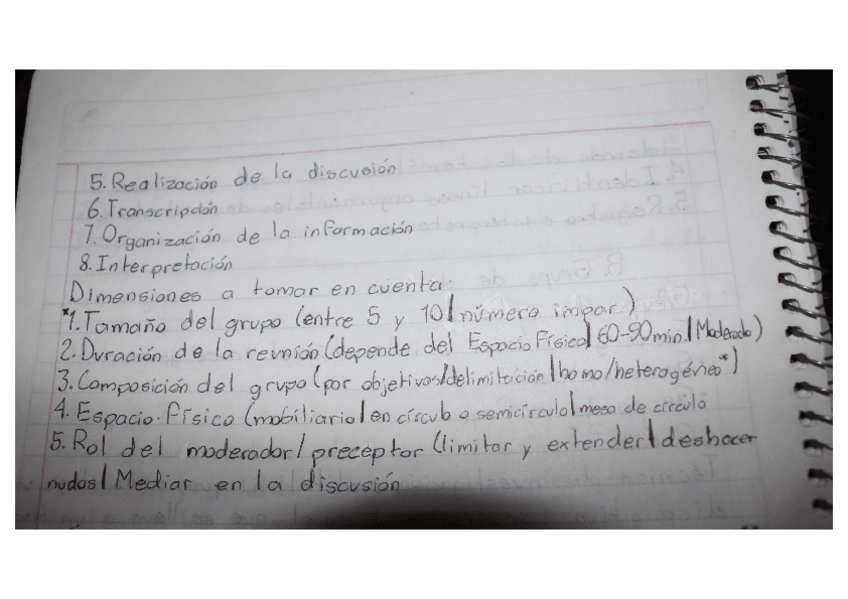 5. Realización de la discusión
6. Transcripción
7. Organización de la información
8. Interpretación
Dimensiones a tomar en cuenta
*1. Tamaño del grupo (entre 5 y 10/número impar)
2. Duración de la reunión (depende del Espacio Físico/60-90min./Moderado)
3. Composición del grupo (por objetivos/delimitación/homo/heterogéneo*)
4. Espacio Físico (mobiliario/en círculo o semicírculo/mesa de círculo
5. Rol del moderador/preceptor (limitar y extender/deshacer
nudos/Mediar en la discusión